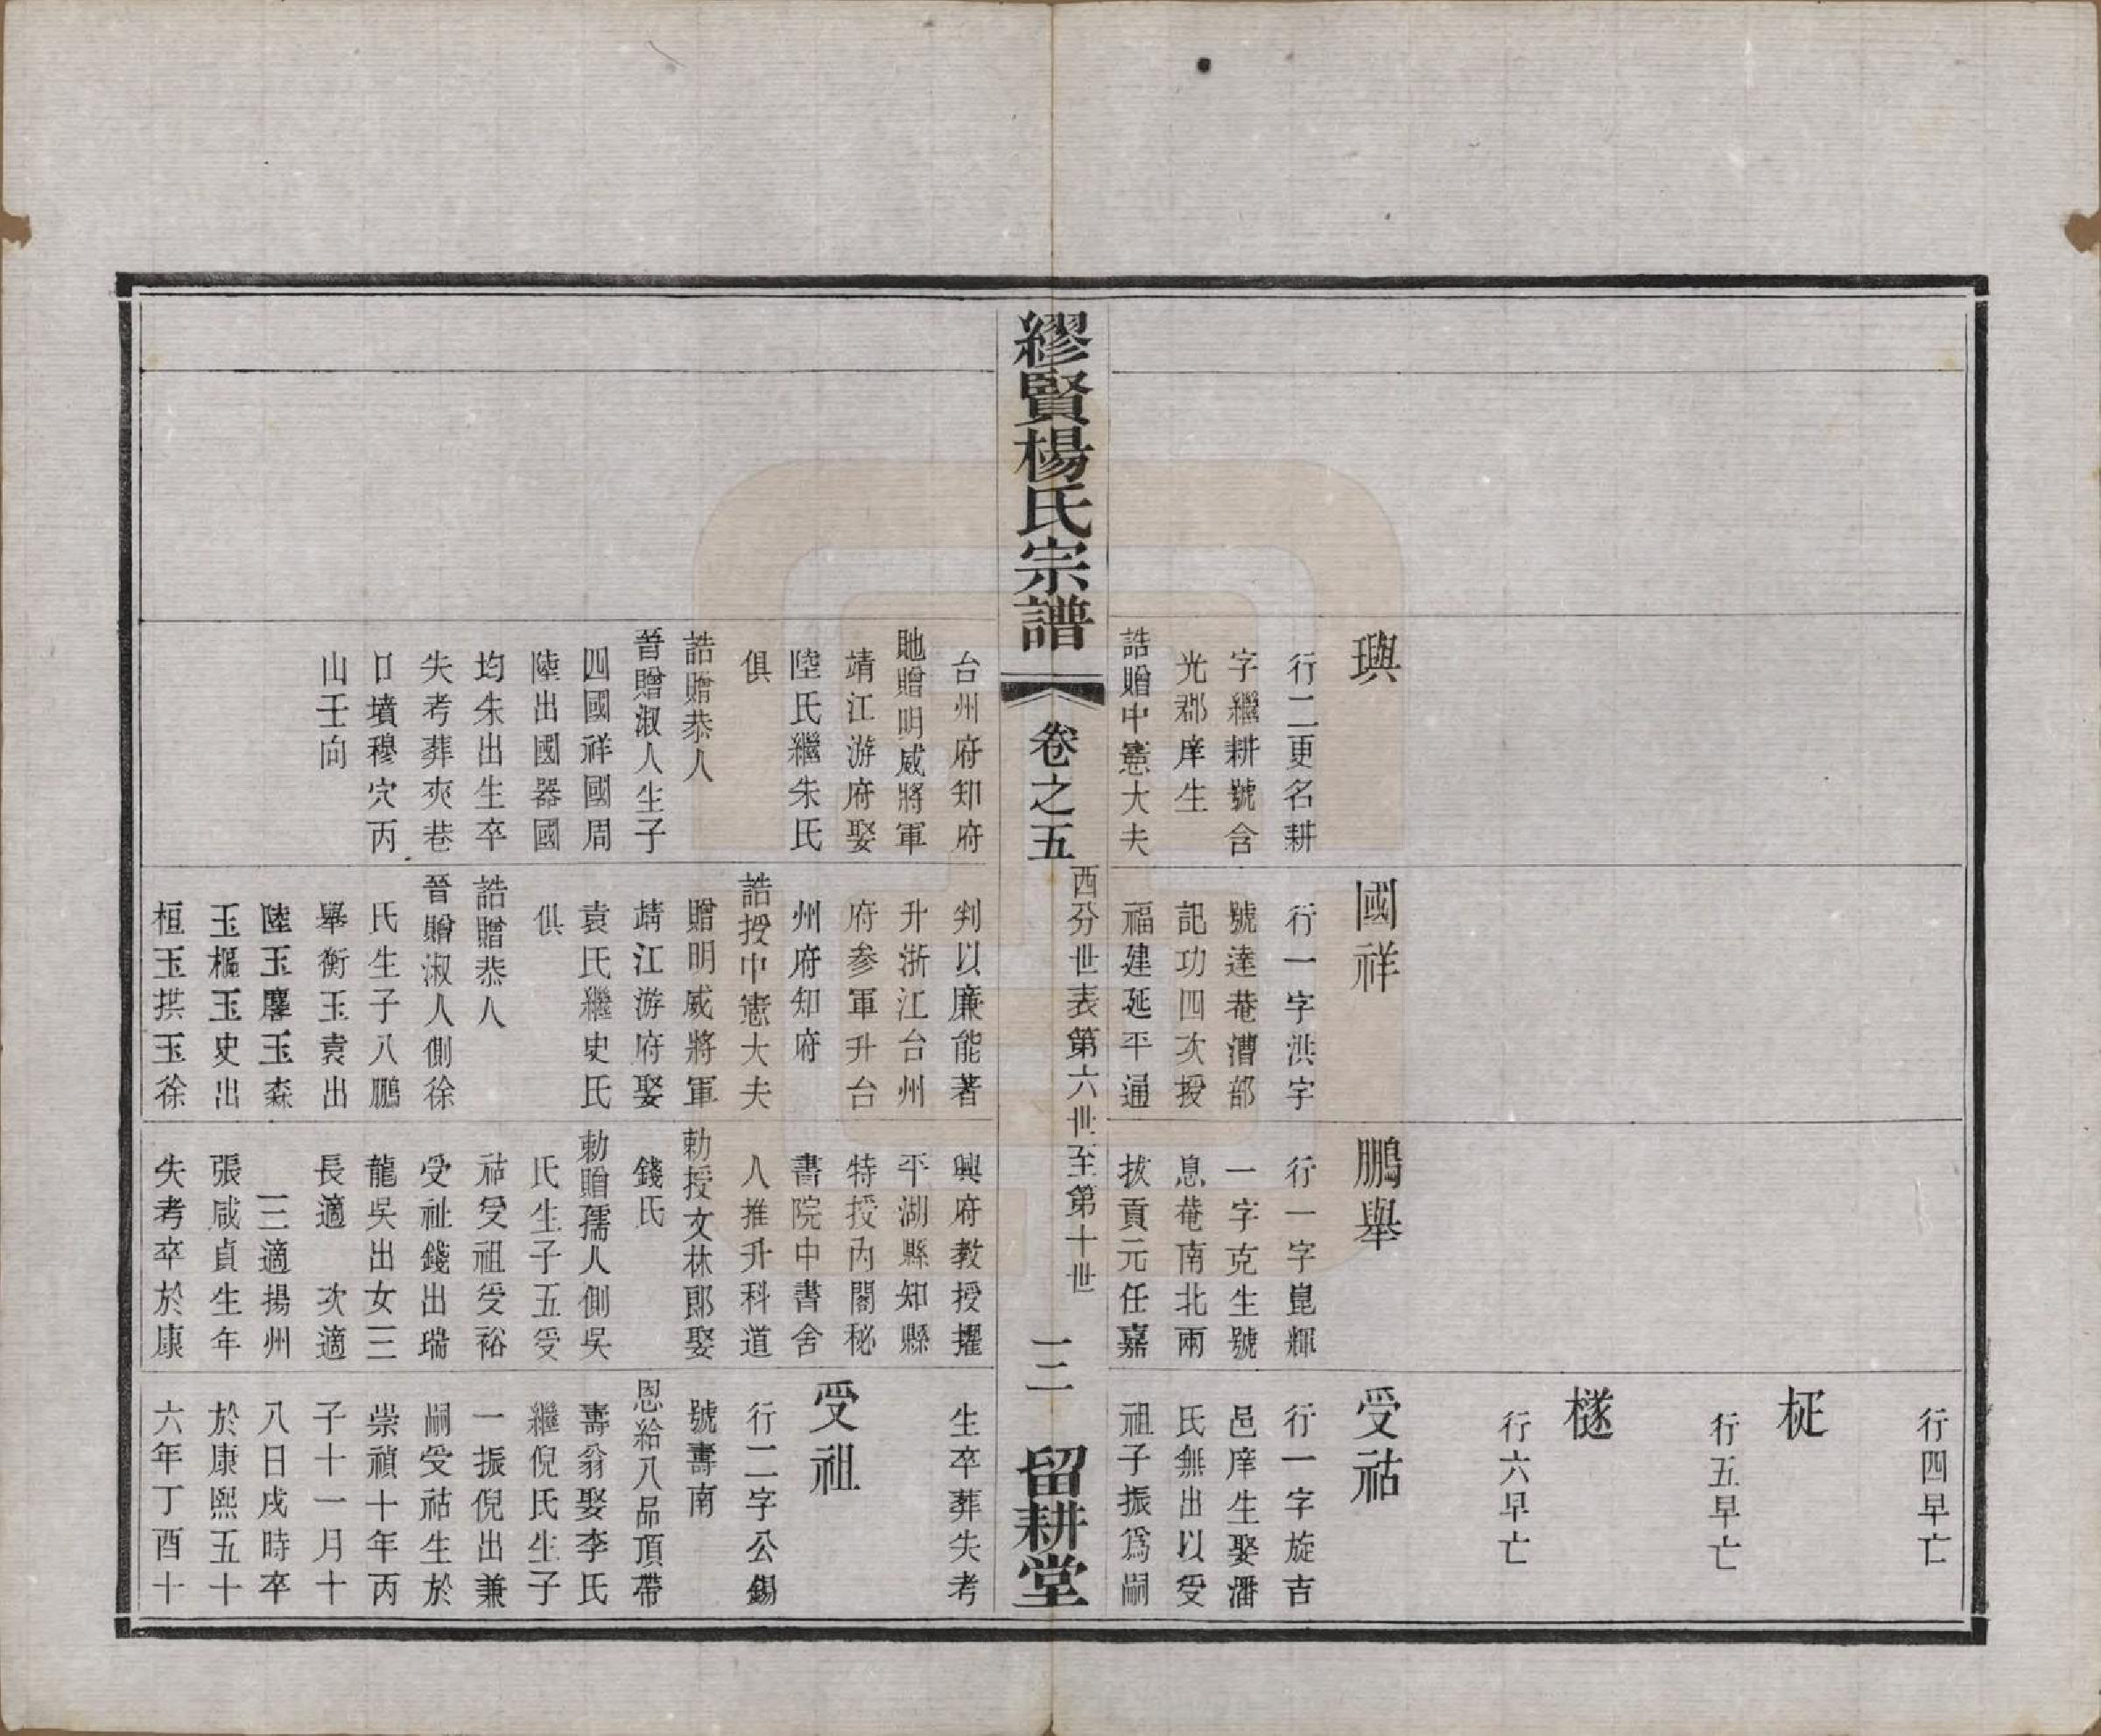 行四早亡
柾
行五早亡
檖
行六早亡
璵
行二更名耕
字繼耕號含
光郡庠生
誥贈中憲大夫
國祥
行一字洪字
號達菴漕部
記功四次授
福建延平通
鵬舉
行一字崑輝
一字克生號
息菴南北兩
拔貢元任嘉
受祜
行一字旋吉
邑庠生娶潘
氏無出以受
祖子振爲嗣
繆賢楊氏宗譜
卷之五
西分世表第六世至第十世
三
留耕堂
台州府知府
貤贈明威將軍
靖江游府娶
陸氏繼朱氏
俱
誥贈恭人
晉贈淑人生子
四國祥國周
陸出國器國
均朱出生卒
失考葬夾巷
口墳穆穴丙
山壬向
判以廉能著
升浙江台州
府參軍升台
州府知府
誥授中憲大夫
贈明威將軍
靖江游府娶
袁氏繼史氏
俱
誥贈恭人
晉贈淑人側徐
氏生子八鵬
舉衡玉袁出
陸玉麐玉森
玉樞玉史出
桓玉拱玉徐
興府教授擢
平湖縣知縣
特授內閣秘
書院中書舍
人推升科道
勅授文林郎娶
錢氏
勅贈孺人側吳
氏生子五受
祜受祖受裕
受祉錢出瑞
龍吳出女三
長適　次適
　三適揚州
張咸貞生年
失考卒於康
生卒葬失考
受祖
行二字公錫
號壽南
恩給八品頂帶
壽翁娶李氏
繼倪氏生子
一振倪出兼
嗣受祜生於
崇禎十年丙
子十一月十
八日戌時卒
於康熙五十
六年丁酉十